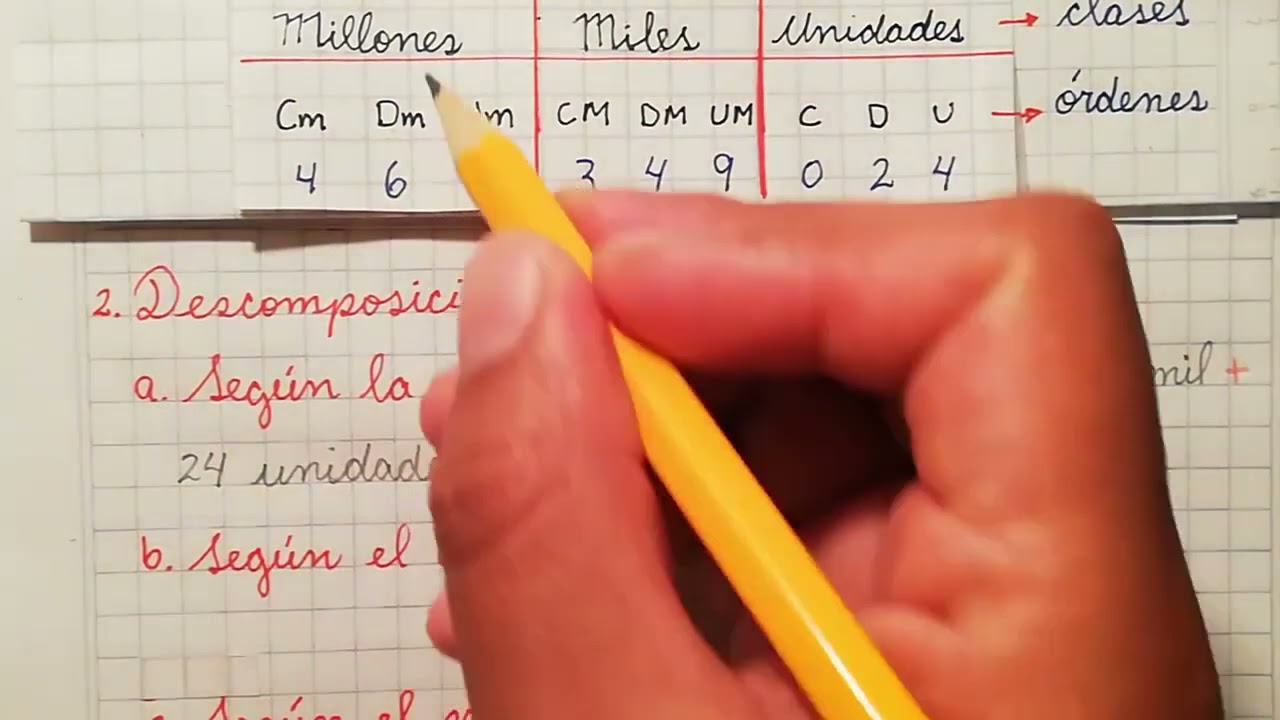 Millones Miles Unidades → clases
Cm Dm CM DM UM C D U → órdenes
4 6 3 4 9 0 2 4
2. Descomposici
a. Según la mil +
24 unidad
b. Según el
Según el